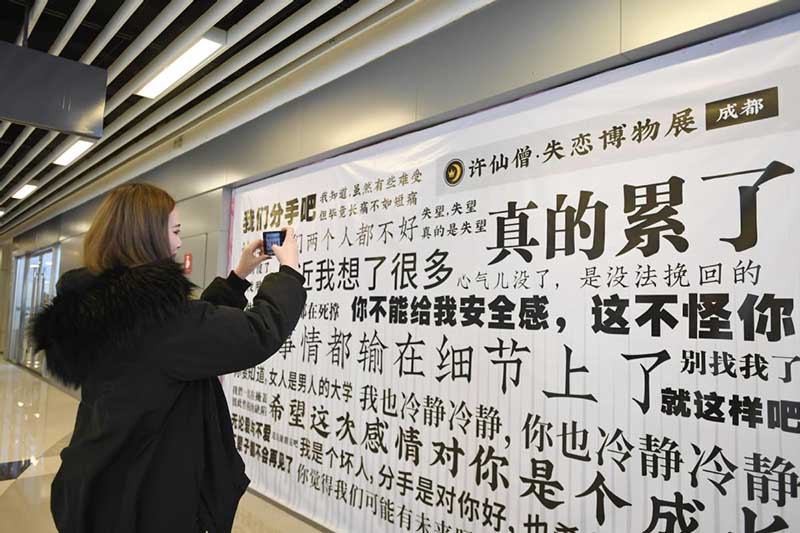 许仙僧·失恋博物展 成都
我们分手吧
我知道,虽然有些难受
但毕竟长痛不如短痛
失望,失望
真的是失望
真的累了
们两个人都不好
近我想了很多
心气儿没了,是没法挽回的
都在死撑
你不能给我安全感,这不怪你
事情都输在细节上了
别找我了
就这样吧
知道,女人是男人的大学
我也冷静冷静,你也冷静冷静
希望这次感情对你是个成长
无论爱与不爱
都不会再见了
我是个坏人,分手是对你好,
你觉得我们可能有未来